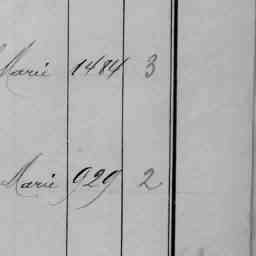 Marie 1484 3
Marie 929 2